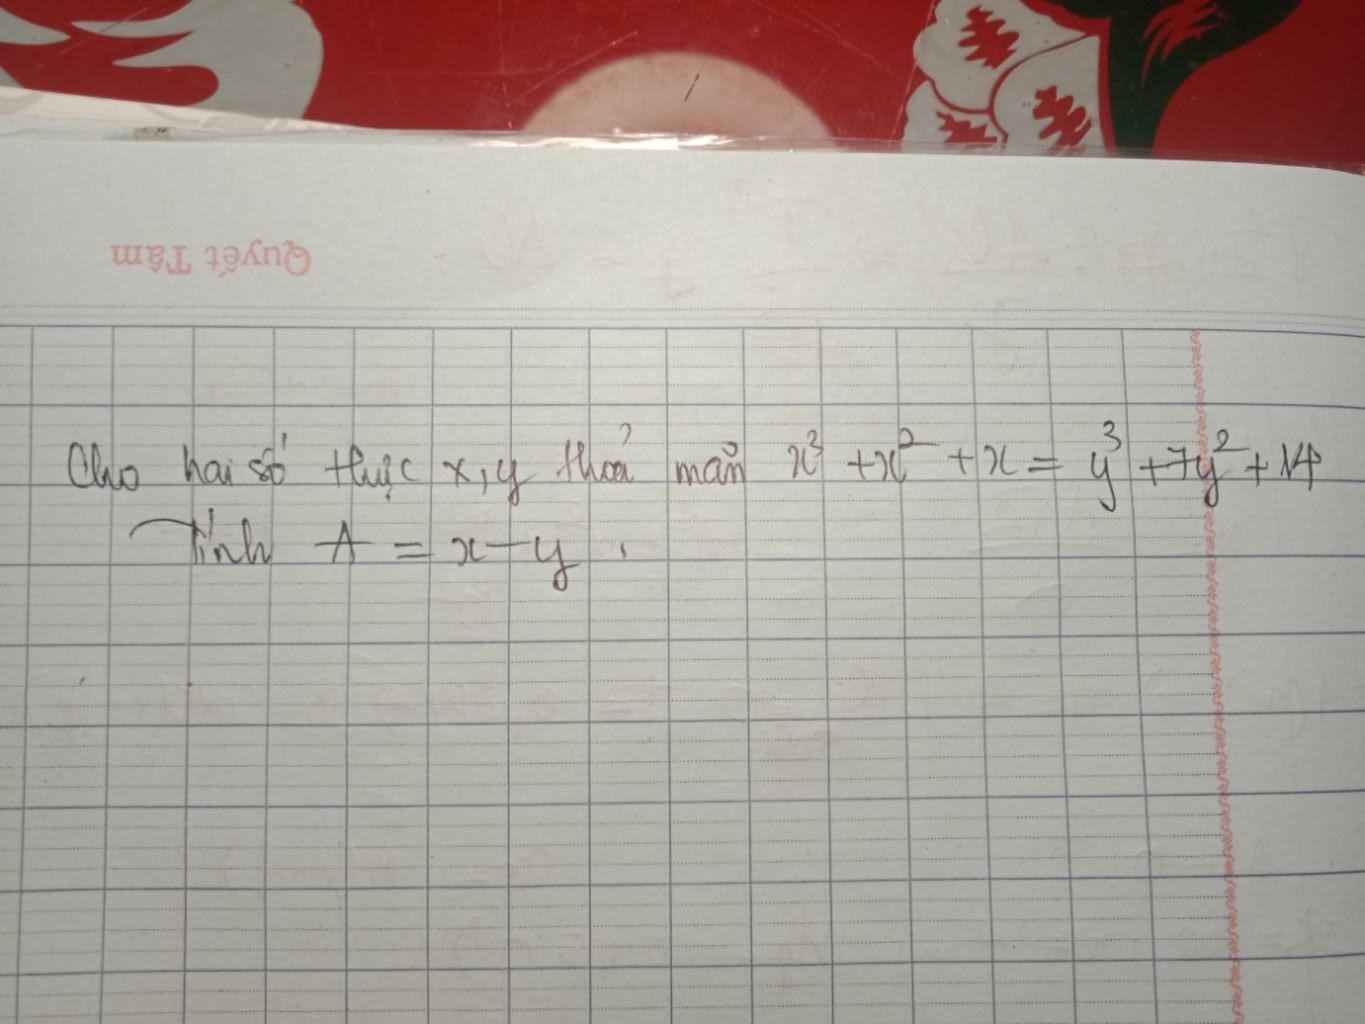 Quyết Tâm
Cho hai số thực x, y thoả mãn x³ + x² + x = y³ + 7y² + 14
Tính A = x - y.